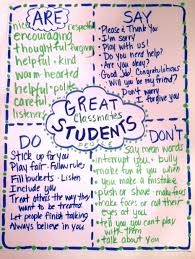 ARE
nice respectful
encouraging
thoughtful forgiving
helpful · kind
warm hearted
helpful · polite
careful
listeners
SAY
Please & Thank You
I'm Sorry
Play with us!
Do you need help?
Are you okay?
Good Job! Congratulations
Will you be my friend?
Don't worry
I forgive you
GREAT
Classmates
STUDENTS
PEOPLE
DO
Stick up for you
Play fair · Follow rules
Fill buckets · Listen
Include you
Treat others the way they
want to be treated
Let people finish talking
Always believe in you
DON'T
Say mean words
interrupt you · bully
make fun of you when
you make a mistake
push or shove · make
faces or roll their
eyes at you
tell you can't play with
them
talk about you